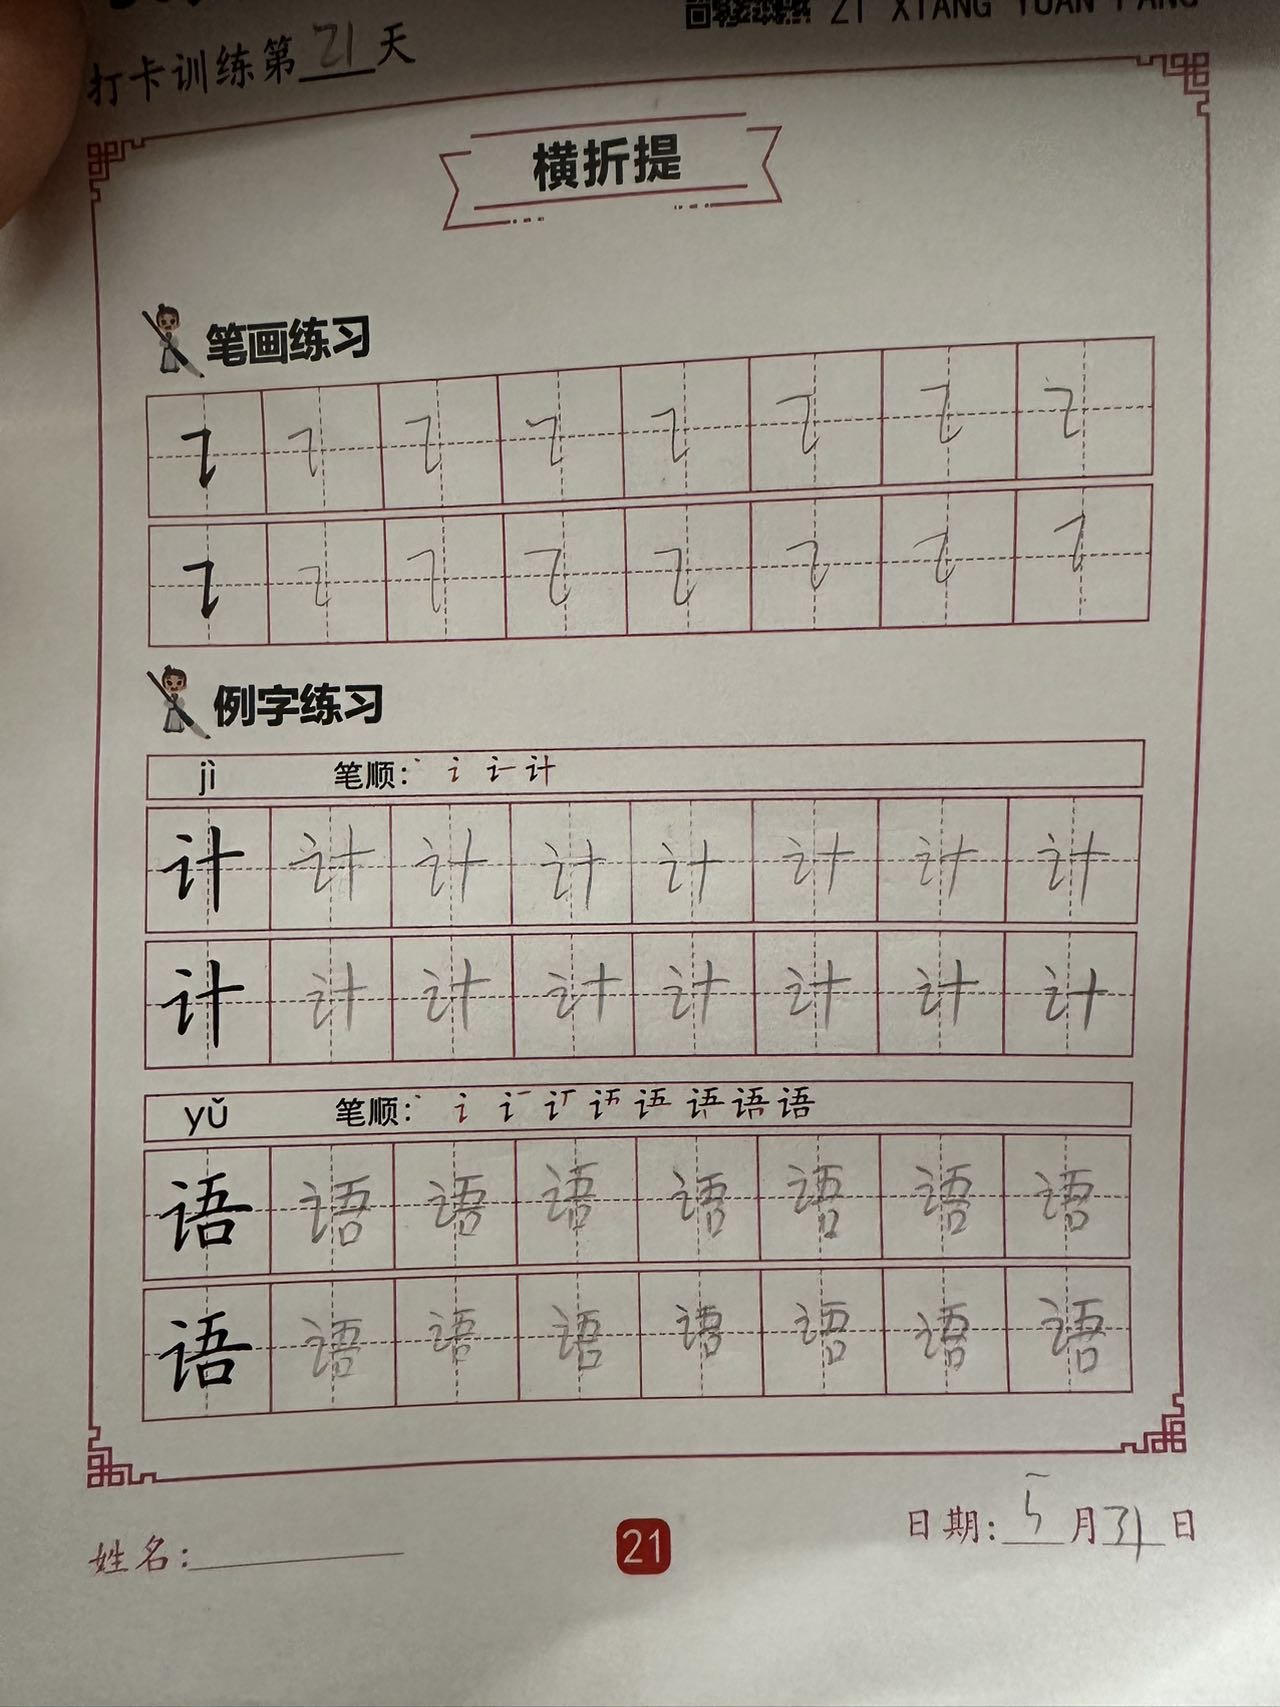 ZI XIANG YUAN FANG
打卡训练第21天
横折提
笔画练习
例字练习
jì 笔顺: 计
计 计 计 计 计 计 计 计
计 计 计 计 计 计 计 计
yǔ 笔顺: 语 语
语 语 语 语 语 语 语 语
语 语 语 语 语 语 语 语
姓名: 21 日期: 5月31日